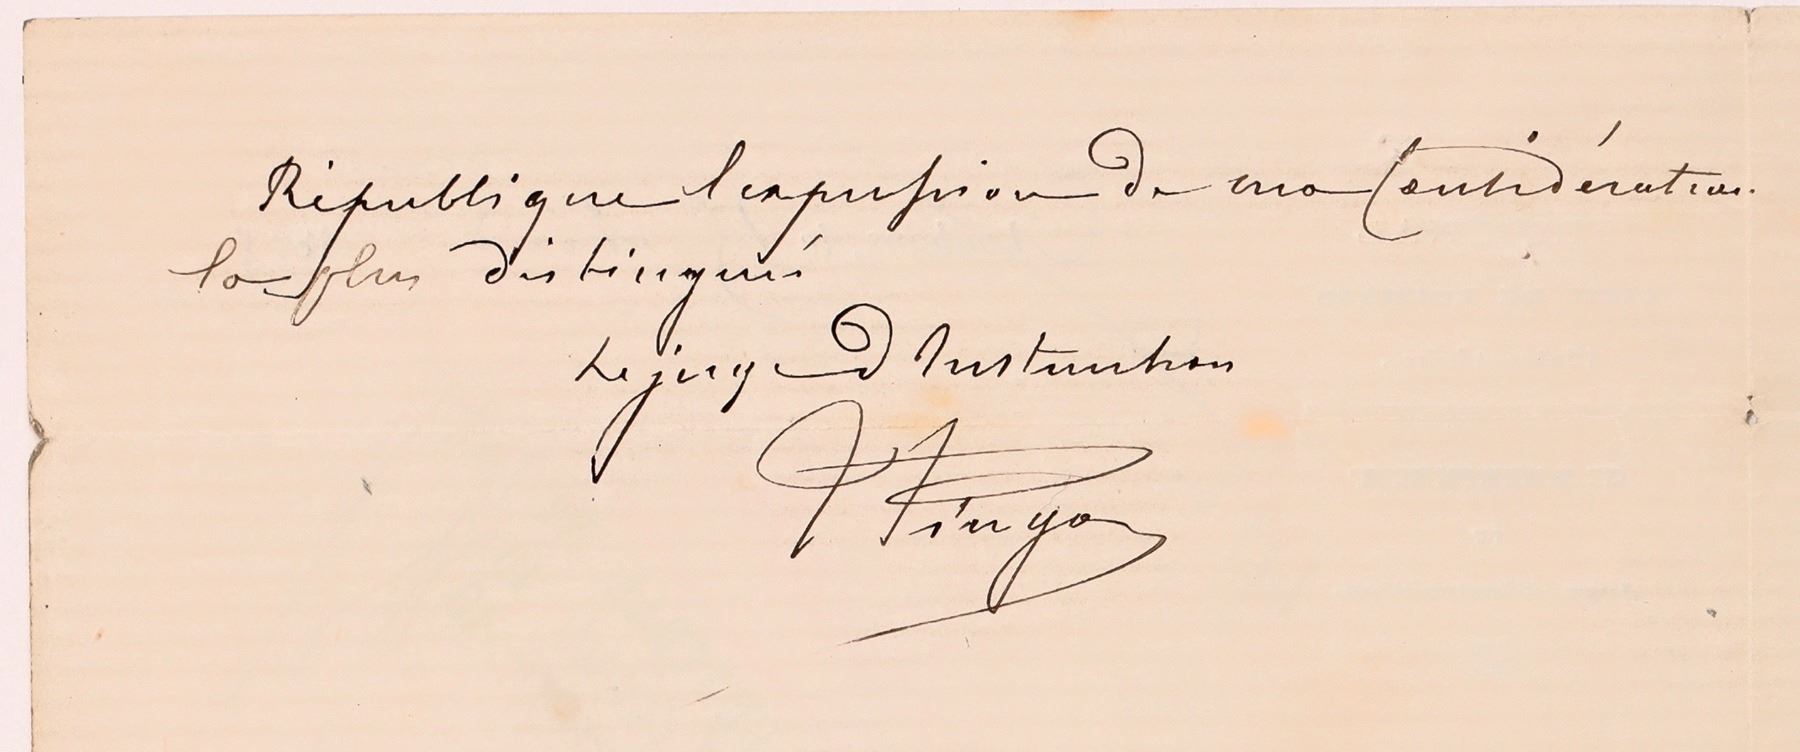 République l'expression de ma Considération
la plus distinguée
Le juge d'Instruction